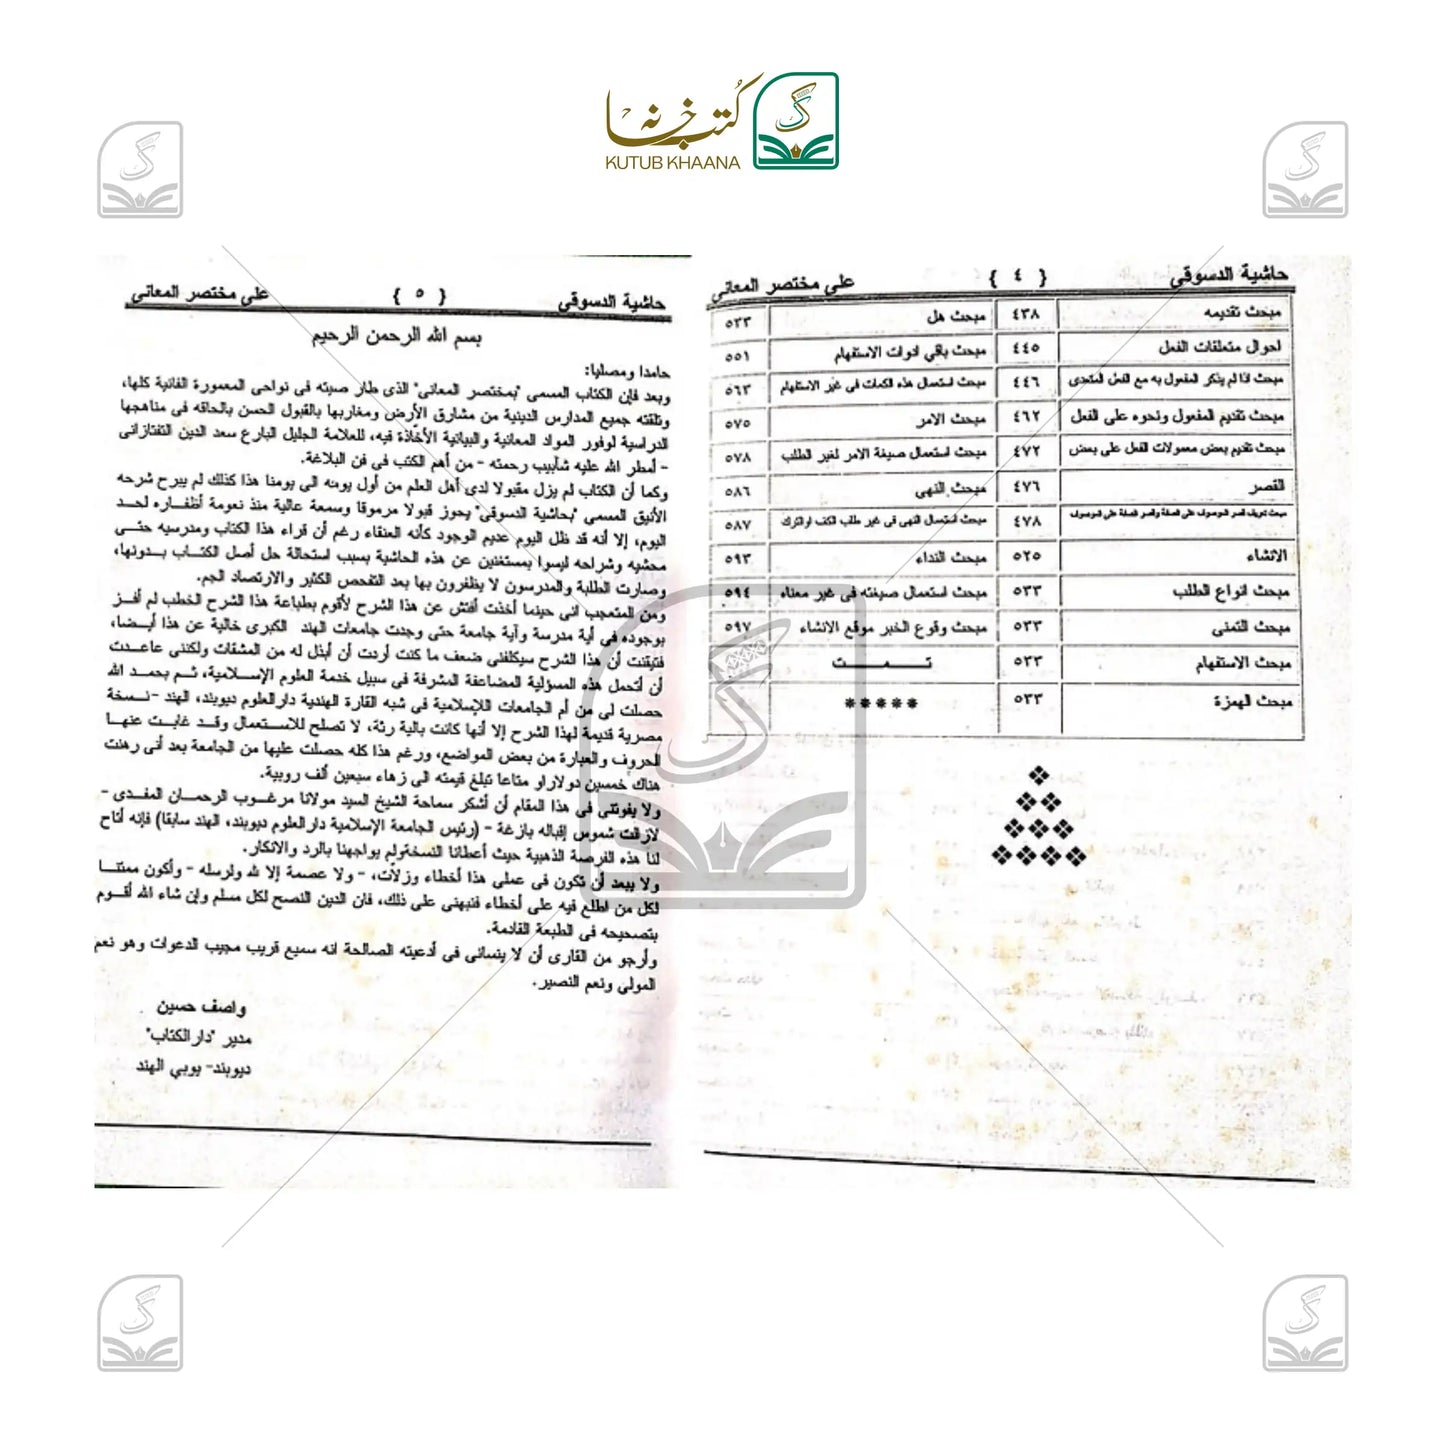 كتب خانه
KUTUB KHAANA
حاشية الدسوقى { ٤ } على مختصر المعانى
مبحث تقديمه ٤٣٨ مبحث هل ٥٣٣
احوال متعلقات الفعل ٤٤٥ مبحث باقي ادوات الاستفهام ٥٥١
مبحث اذا لم يذكر المفعول به مع الفعل المتعدى ٤٤٦ مبحث استعمال هذه الكمات فى غير الاستفهام ٥٦٣
مبحث تقديم المفعول ونحوه على الفعل ٤٦٢ مبحث الامر ٥٧٥
مبحث تقديم بعض معمولات الفعل على بعض ٤٧٢ مبحث استعمال صيغة الامر لغير الطلب ٥٧٨
القصر ٤٧٦ مبحث النهى ٥٨٦
مبحث تعريف قصر الموصوف على الصفة وقصر الصفة على الموصوف ٤٧٨ مبحث استعمال النهى فى غير طلب الكف او الترك ٥٨٧
الانشاء ٥٢٥ مبحث النداء ٥٩٣
مبحث انواع الطلب ٥٣٣ مبحث استعمال صيغته فى غير معناه ٥٩٤
مبحث التمنى ٥٣٣ مبحث وقوع الخبر موقع الانشاء ٥٩٧
مبحث الاستفهام ٥٣٣ تمت
مبحث الهمزة ٥٣٣ *****
حاشية الدسوقى { ٥ } على مختصر المعانى
بسم الله الرحمن الرحيم
حامدا ومصليا:
وبعد فإن الكتاب المسمى "بمختصر المعانى" الذى طار صيته فى نواحى المعمورة الفانية كلها،
وتلقته جميع المدارس الدينية من مشارق الأرض ومغاربها بالقبول الحسن بالحاقه فى مناهجها
الدراسية لوفور المواد المعانية والبيانية الأخّاذة فيه، للعلامة الجليل البارع سعد الدين التفتازانى
- أمطر الله عليه شآبيب رحمته - من أهم الكتب فى فن البلاغة.
وكما أن الكتاب لم يزل مقبولا لدى أهل العلم من أول يومه الى يومنا هذا كذلك لم يبرح شرحه
الأنيق المسمى "بحاشية الدسوقى" يحوز قبولا مرموقا وسمعة عالية منذ نعومة أظفاره لحد
اليوم، إلا أنه قد ظل اليوم عديم الوجود كأنه العنقاء رغم أن قراء هذا الكتاب ومدرسيه حتى
محشيه وشراحه ليسوا بمستغنين عن هذه الحاشية بسبب استحالة حل أصل الكتاب بدونها،
وصارت الطلبة والمدرسون لا يظفرون بها بعد التفحص الكثير والارتصاد الجم.
ومن المتعجب انى حينما أخذت أفتش عن هذا الشرح لأقوم بطباعة هذا الشرح الخطب لم أفز
بوجوده فى أية مدرسة وآية جامعة حتى وجدت جامعات الهند الكبرى خالية عن هذا أيضا،
فتيقنت أن هذا الشرح سيكلفنى ضعف ما كنت أردت أن أبذل له من المشقات ولكننى عاهدت
أن أتحمل هذه المسؤلية المضاعفة المشرفة فى سبيل خدمة العلوم الإسلامية، ثم بحمد الله
حصلت لى من أم الجامعات اللإسلامية فى شبه القارة الهندية دارالعلوم ديوبند، الهند -نسخة
مصرية قديمة لهذا الشرح إلا أنها كانت بالية رثة، لا تصلح للاستعمال وقد غابت عنها
الحروف والعبارة من بعض المواضع، ورغم هذا كله حصلت عليها من الجامعة بعد أنى رهنت
هناك خمسين دولاراو متاعا تبلغ قيمته الى زهاء سبعين ألف روبية.
ولا يفوتنى فى هذا المقام أن أشكر سماحة الشيخ السيد مولانا مرغوب الرحمان المفدى -
لازالت شموس إقباله بازغة - (رئيس الجامعة الإسلامية دارالعلوم ديوبند، الهند سابقا) فإنه أتاح
لنا هذه الفرصة الذهبية حيث أعطانا النسخةولم يواجهنا بالرد والانكار.
ولا يبعد أن تكون فى عملى هذا أخطاء وزلات، - ولا عصمة إلا لله ولرسله - وأكون ممتنا
لكل من اطلع فيه على أخطاء فنبهنى على ذلك، فان الدين النصح لكل مسلم وإن شاء الله أقوم
بتصحيحه فى الطبعة القادمة.
وأرجو من القارى أن لا ينسانى فى أدعيته الصالحة انه سميع قريب مجيب الدعوات وهو نعم
المولى ونعم النصير.
واصف حسين
مدير "دارالكتاب"
ديوبند- يوبي الهند